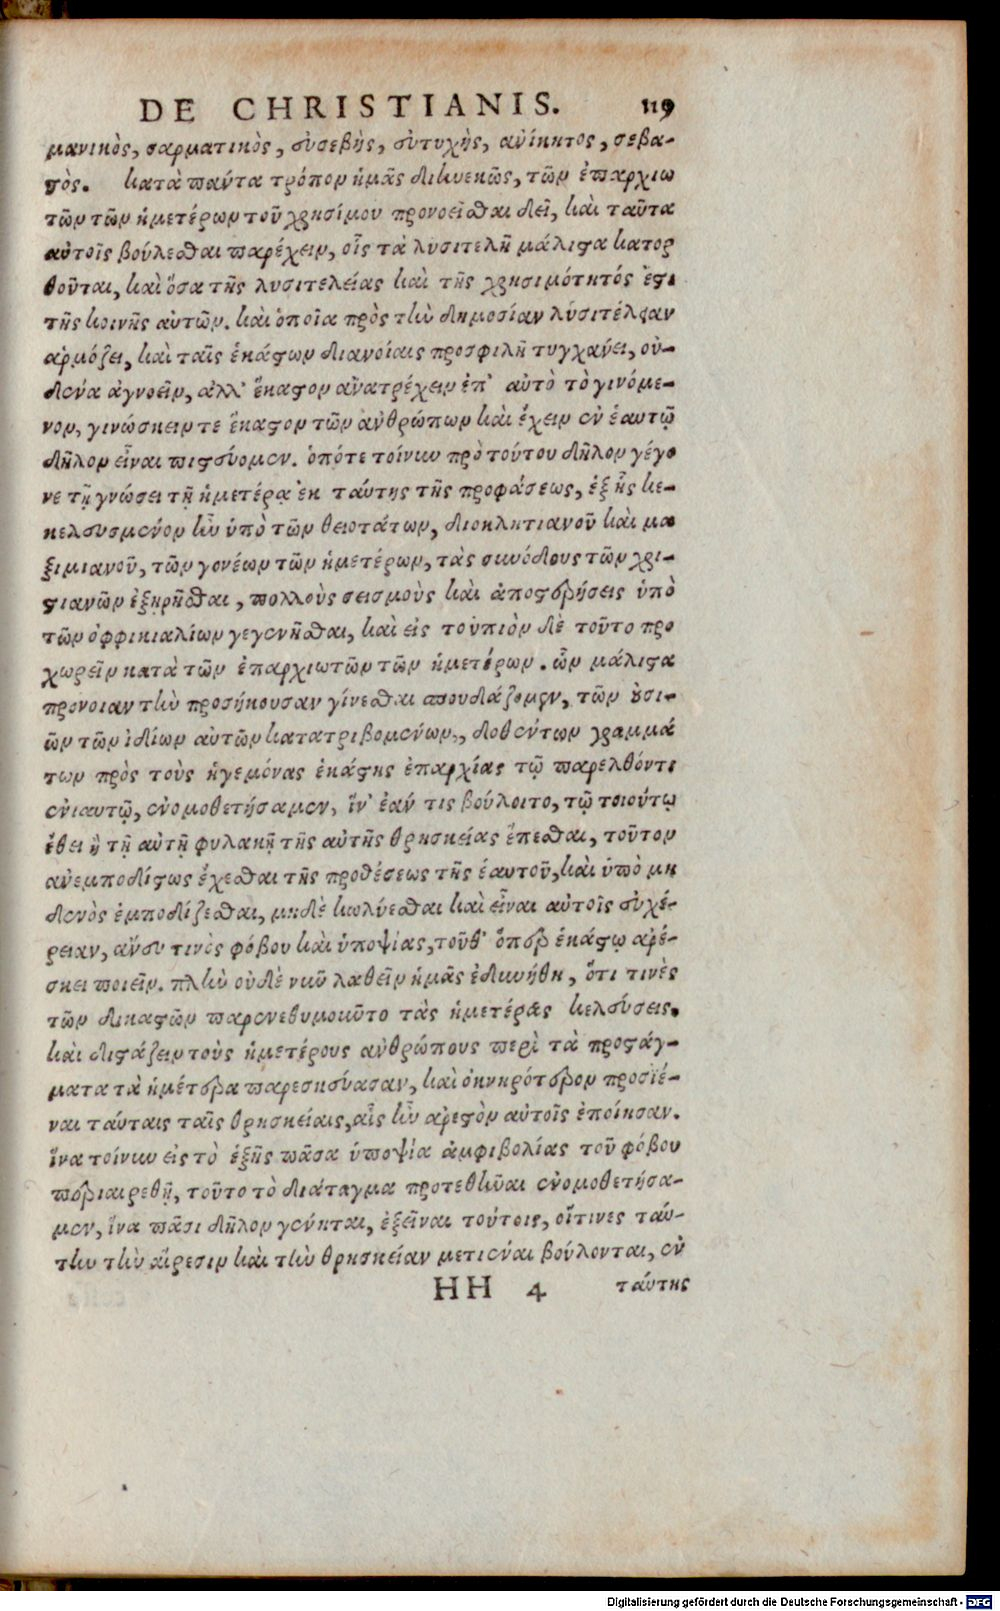 DE CHRISTIANIS. 119
μανικὸς, σαρματικὸς, εὐσεβὴς, εὐτυχὴς, ἀνίκητος, σεβα-
στός. κατὰ πάντα τρόπον ἡμᾶς διηνεκῶς, τῶν ἐπαρχιω
τῶν τῶν ἡμετέρων τοῦ χρησίμου προνοεῖσθαι δεῖ, καὶ ταῦτα
αὐτοῖς βούλεσθαι παρέχειν, οἷς τὰ λυσιτελῆ μάλιστα κατορ
θοῦται, καὶ ὅσα τῆς λυσιτελείας καὶ τῆς χρησιμότητός ἐστι
τῆς κοινῆς αὐτῶν. καὶ ὁποῖα πρὸς τὴν δημοσίαν λυσιτέλειαν
ἁρμόζει, καὶ ταῖς ἑκάστων διανοίαις προσφιλῆ τυγχάνει, οὐ-
δένα ἀγνοεῖν, ἀλλ' ἕκαστον ἀνατρέχειν ἐπ' αὐτὸ τὸ γινόμε-
νον, γινώσκειν τε ἕκαστον τῶν ἀνθρώπων καὶ ἔχειν ἐν ἑαυτῷ
δῆλον εἶναι πιστεύομεν. ὁπότε τοίνυν πρὸ τούτου δῆλον γέγο
νε τῇ γνώσει τῇ ἡμετέρᾳ ἐκ ταύτης τῆς προφάσεως, ἐξ ἧς κε-
κελευσμένον ἦν ὑπὸ τῶν θειοτάτων, διοκλητιανοῦ καὶ μα
ξιμιανοῦ, τῶν γονέων τῶν ἡμετέρων, τὰς συνόδους τῶν χρι-
στιανῶν ἐξηρῆσθαι, πολλοὺς σεισμοὺς καὶ ἀποστερήσεις ὑπὸ
τῶν ὀφφικιαλίων γεγενῆσθαι, καὶ εἰς τοὐπιὸν δὲ τοῦτο προ
χωρεῖν κατὰ τῶν ἐπαρχιωτῶν τῶν ἡμετέρων. ὧν μάλιστα
πρόνοιαν τὴν προσήκουσαν γίνεσθαι σπουδάζομεν, τῶν οὐσι-
ῶν τῶν ἰδίων αὐτῶν κατατριβομένων, δοθέντων γραμμά
των πρὸς τοὺς ἡγεμόνας ἑκάστης ἐπαρχίας τῷ παρελθόντι
ἐνιαυτῷ, ἐνομοθετήσαμεν, ἵν' ἐάν τις βούλοιτο, τῷ τοιούτῳ
ἔθει ἢ τῇ αὐτῇ φυλακῇ τῆς αὐτῆς θρησκείας ἕπεσθαι, τοῦτον
ἀνεμποδίστως ἔχεσθαι τῆς προθέσεως τῆς ἑαυτοῦ, καὶ ὑπὸ μη
δενὸς ἐμποδίζεσθαι, μηδὲ κωλύεσθαι καὶ εἶναι αὐτοῖς εὐχέ-
ρειαν, ἄνευ τινὸς φόβου καὶ ὑποψίας, τοῦθ' ὅπερ ἑκάστῳ ἀρέ-
σκει ποιεῖν. πλὴν οὐδὲ νῦν λαθεῖν ἡμᾶς ἐδυνήθη, ὅτι τινὲς
τῶν δικαστῶν παρενεθυμοῦντο τὰς ἡμετέρας κελεύσεις.
καὶ διστάζειν τοὺς ἡμετέρους ἀνθρώπους περὶ τὰ προστάγ-
ματα τὰ ἡμέτερα παρεσκεύασαν, καὶ ὀκνηρότερον προσϊέ-
ναι ταύταις ταῖς θρησκείαις, αἷς ἦν ἀρεστὸν αὐτοῖς ἐποίησαν.
ἵνα τοίνυν εἰς τὸ ἑξῆς πᾶσα ὑποψία ἀμφιβολίας τοῦ φόβου
περιαιρεθῇ, τοῦτο τὸ διάταγμα προτεθῆναι ἐνομοθετήσα-
μεν, ἵνα πᾶσι δῆλον γένηται, ἐξεῖναι τούτοις, οἵτινες ταύ-
την τὴν αἵρεσιν καὶ τὴν θρησκείαν μετιέναι βούλονται, ἐν
HH 4 ταύτης
Digitalisierung gefördert durch die Deutsche Forschungsgemeinschaft - DFG